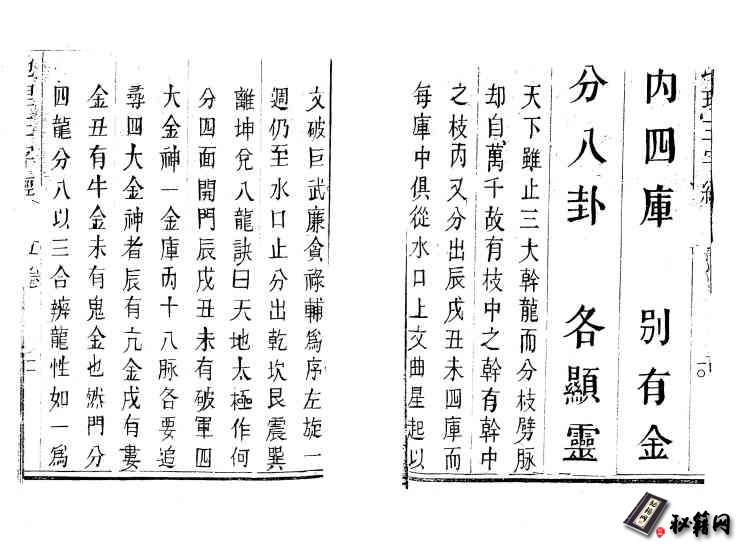 内四庫 別有金
分八卦 各顯靈
天下雖止三大幹龍而分枝劈脉
却自萬千故有枝中之幹有幹中
之枝丙又分出辰戌丑未四庫而
每庫中俱從水口上文曲星起以
文破巨武廉貪祿輔為序左旋一
週仍至水口止分出乾坎艮震巽
離坤兌八龍訣曰天地太極作何
分四面開門辰戌丑未有破軍四
大金神一金庫丙十八脉各要追
尋四大金神者辰有亢金戌有婁
金丑有牛金未有鬼金也然門分
四龍分八以三合辨龍性如一為
秘籍网